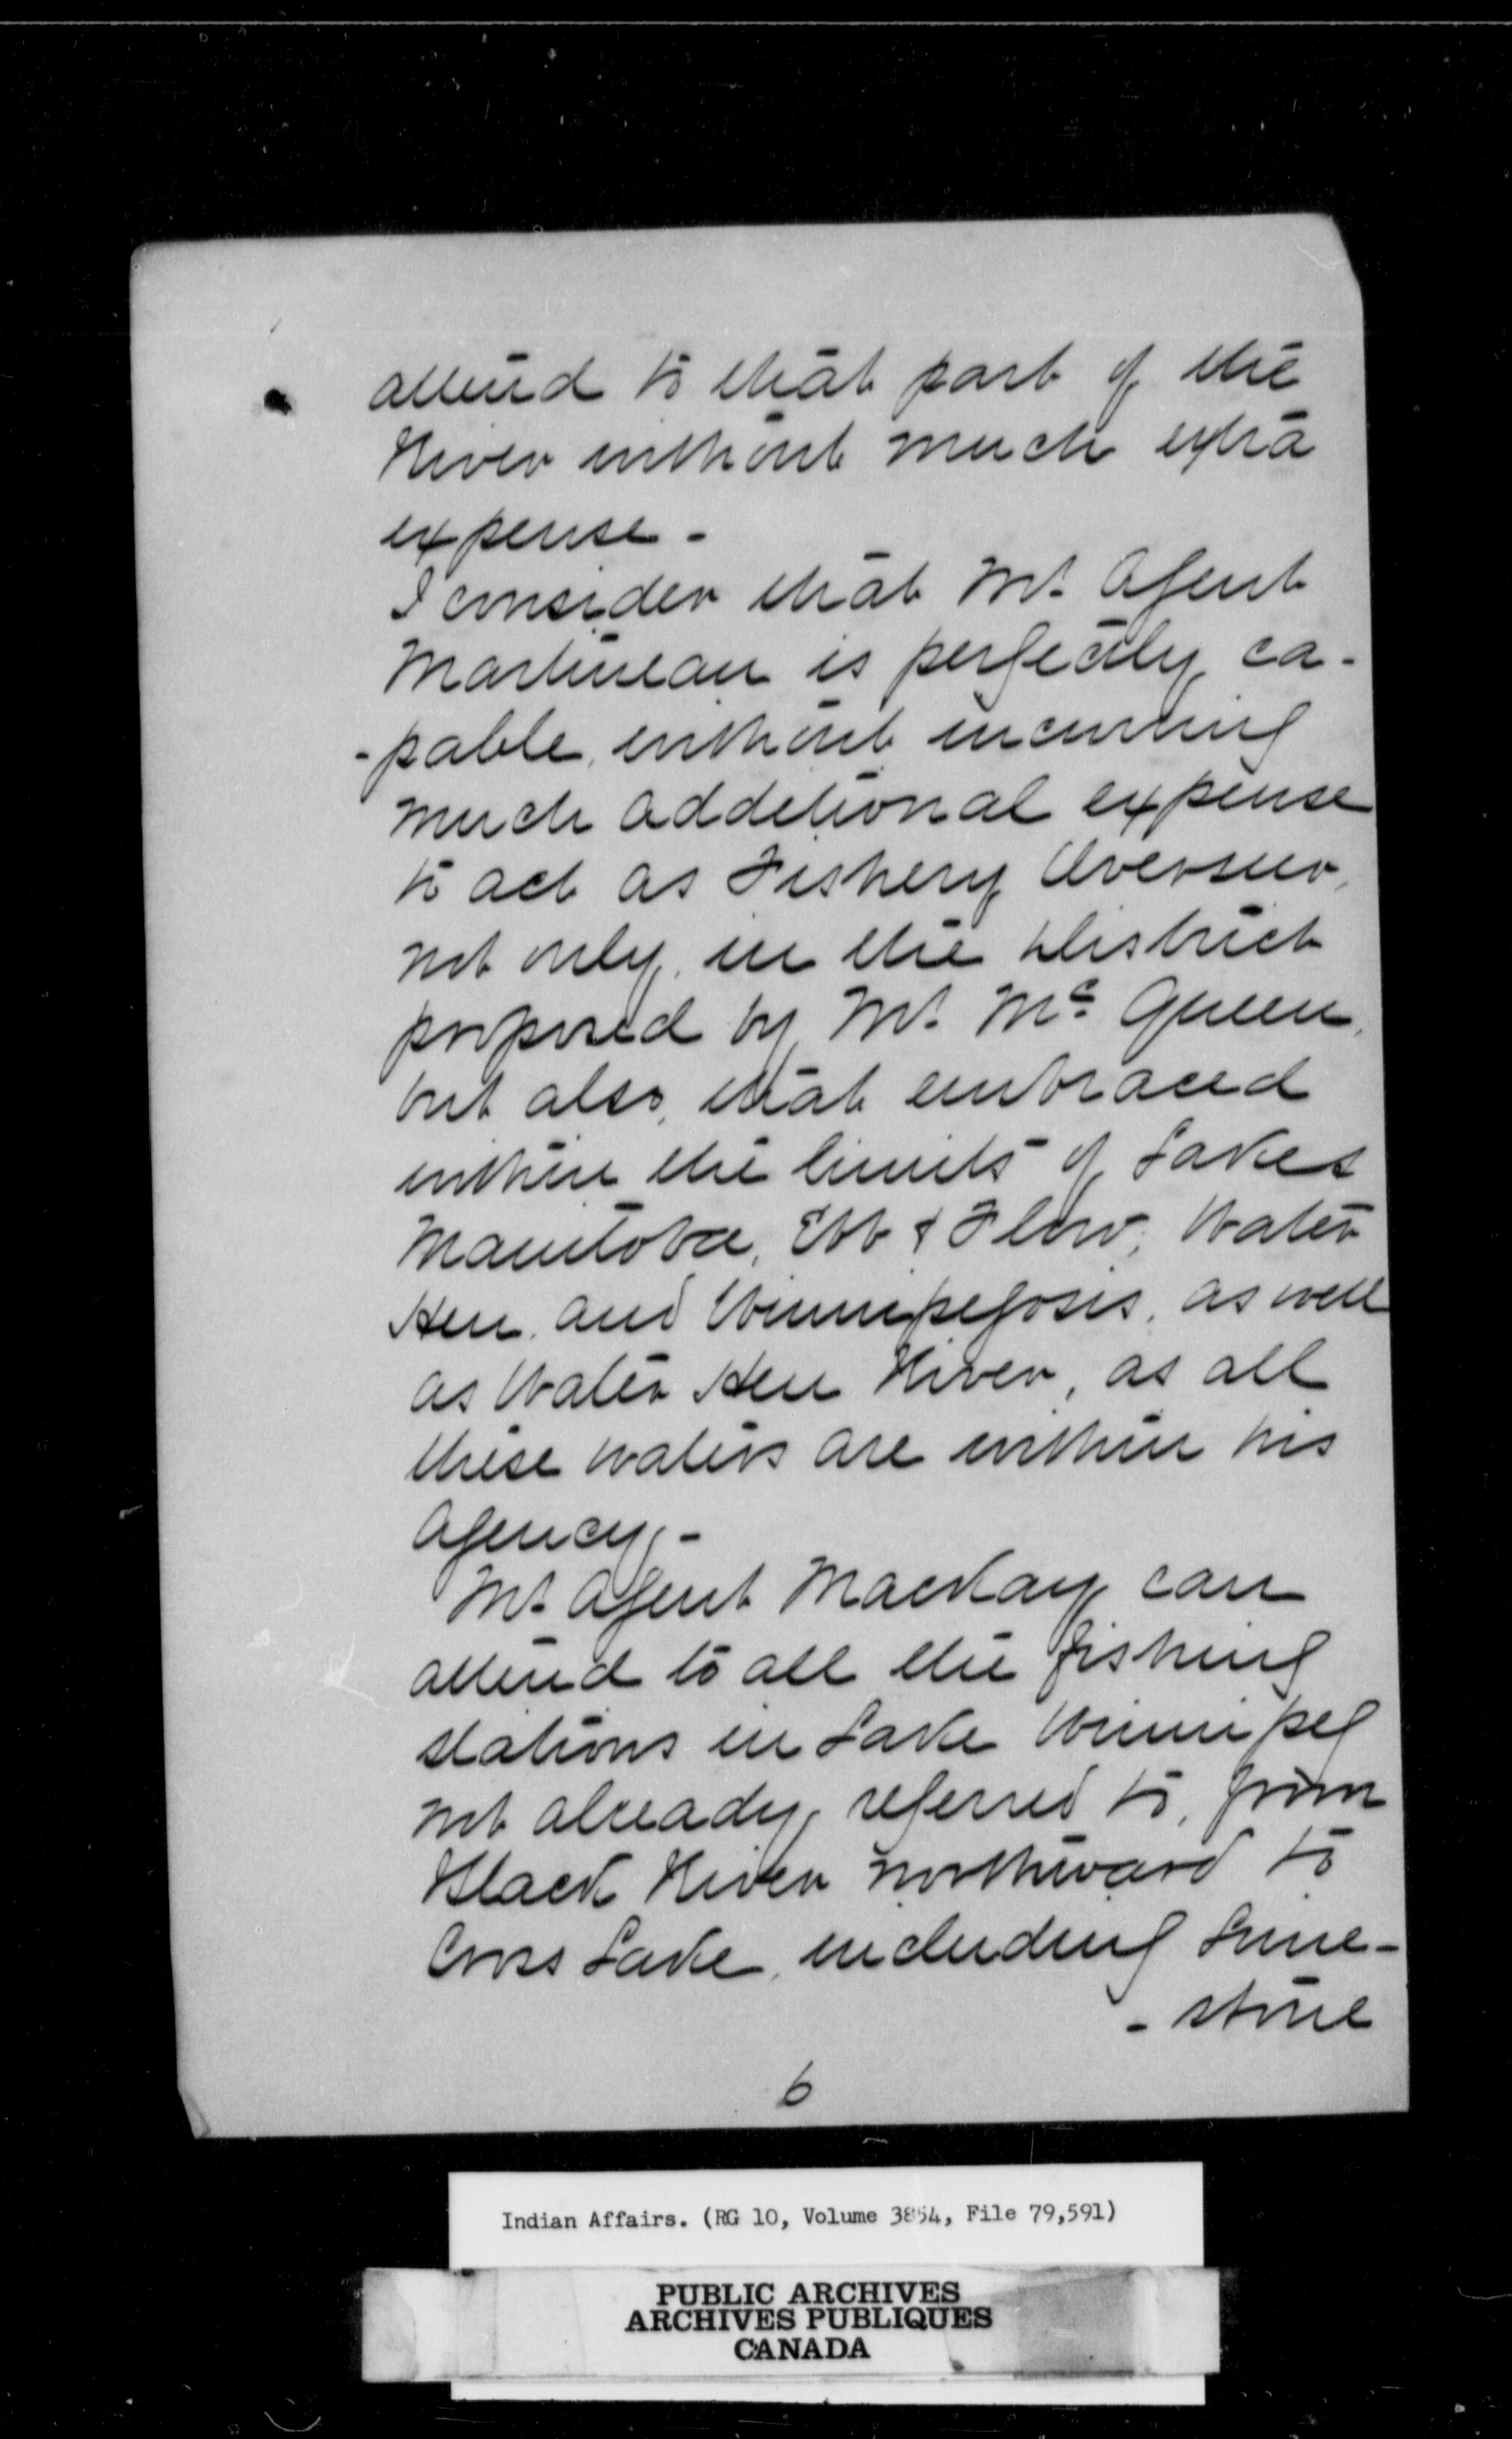 attend to that part of the
River without much extra
expense -
I consider that Mr. Agent
Martineau is perfectly ca-
-pable, without incurring
much additional expense
to act as Fishery Overseer,
not only, in the District
proposed by Mr. Mc. Queen,
but also, that embraced
within the limits of Lakes
Manitoba, Ebb & Flow, Water
Hen, and Winnipegosis, as well
as Water Hen River, as all
these waters are within his
Agency, -
Mr. Agent Mackay can
attend to all the fishing
stations in Lake Winnipeg
not already, referred to, from
Black River northward to
Cross Lake, including Lime-
- stone
6
Indian Affairs. (RG 10, Volume 3854, File 79,591)
PUBLIC ARCHIVES
ARCHIVES PUBLIQUES
CANADA